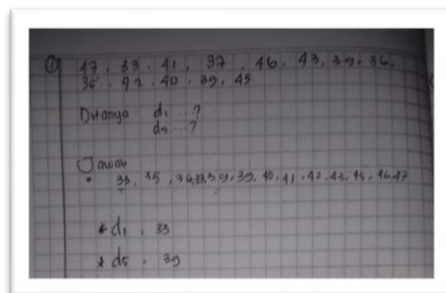 ① 47, 33, 41, 37, 46, 43, 39, 36,
35, 42, 40, 39, 45
Ditanya: d₁ ...?
d₅ ...?
Jawab
• 33, 35, 36, 37, 39, 39, 40, 41, 42, 43, 45, 46, 47
* d₁ = 33
* d₅ = 39